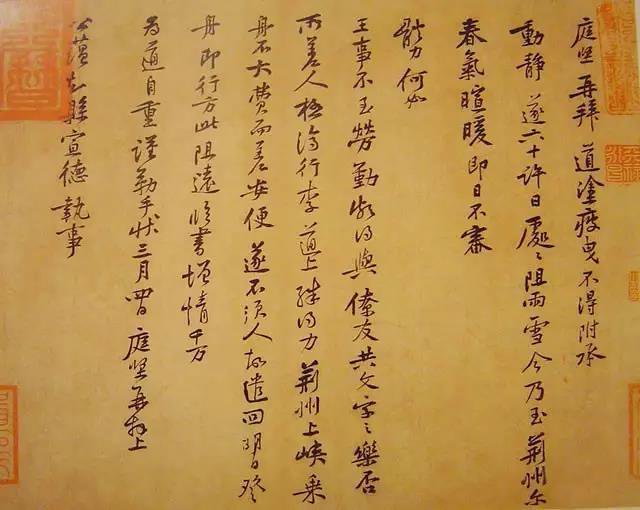 庭坚再拜道塗疲曳不得附承
動静遂六十許日處處阻雨雪今乃至荆州尔
春氣暄暖即日不審
體力何如
王事不至勞勤頗得與僚友共文字之樂否
所差人極濟行李道上殊得力荆州上峽乘
舟不大費而差安便遂不須人故遣回明日登
舟即行方此阻遠临書增情千万
為道自重謹勒手狀三月四日庭坚再拜上
公藴知縣宣德執事